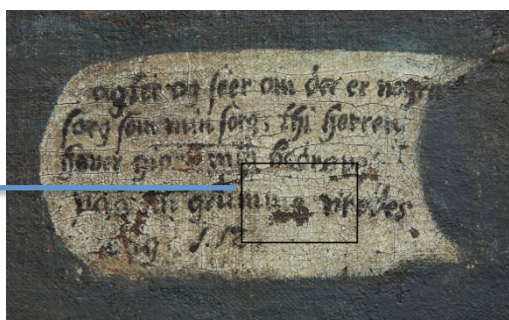 agter og seer om der er nogen
sorg som min sorg; thi Herren
haver giort mig bedrøvet
paa sin grumme vredes
dag 1.12.